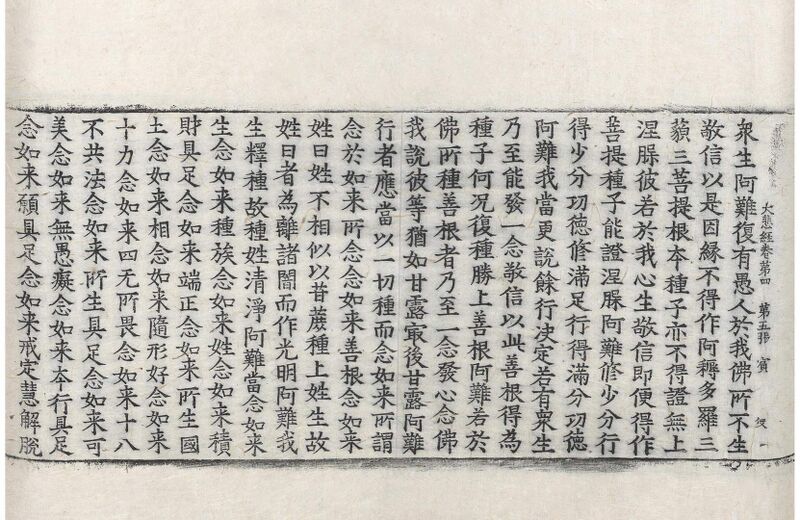 大悲經卷第四 第五張 賓
衆生阿難復有愚人於我佛所不生
敬信以是因緣不得作阿耨多羅三
藐三菩提根夲種子亦不得證無上
涅槃彼若於我心生敬信即便得作
菩提種子能證涅槃阿難修少分行
得少分功德修滿足行得滿分功德
阿難我當更說餘行決定若有衆生
乃至能發一念敬信以此善根得為
種子何況復種勝上善根阿難若於
佛所種善根者乃至一念發心念佛
我說彼等猶如甘露㝡後甘露阿難
行者應當以一切種而念如来所謂
念於如来所念念如来善根念如来
姓曰姓不相似以苷蔗種上姓生故
姓曰者為離諸闇而作光明阿難我
生釋種故種姓清淨阿難當念如来
生念如来種族念如来姓念如来積
財具足念如来端正念如来所生國
土念如来相念如来隨形好念如来
十力念如来四无所畏念如来十八
不共法念如来所生具足念如来可
美念如来無愚癡念如来夲行具足
念如来願具足念如来戒定慧解脫